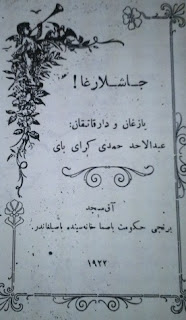 جاشلارغا!
يازغان و دارقاتقان:
عبدالاحد حمدی کرای بای
آق‌مسجد
برنجی حکومت باصما خانه‌سنده باصلغاندر.
۱۹۲۲